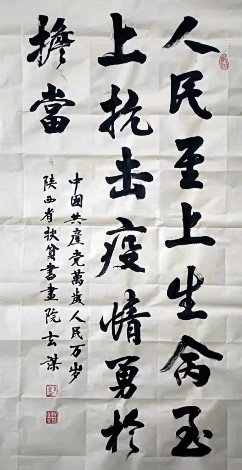 人民至上生命至
上抗击疫情勇於
擔當
中國共產党萬歲人民万岁
陕西省扶貧書畫院玄渫